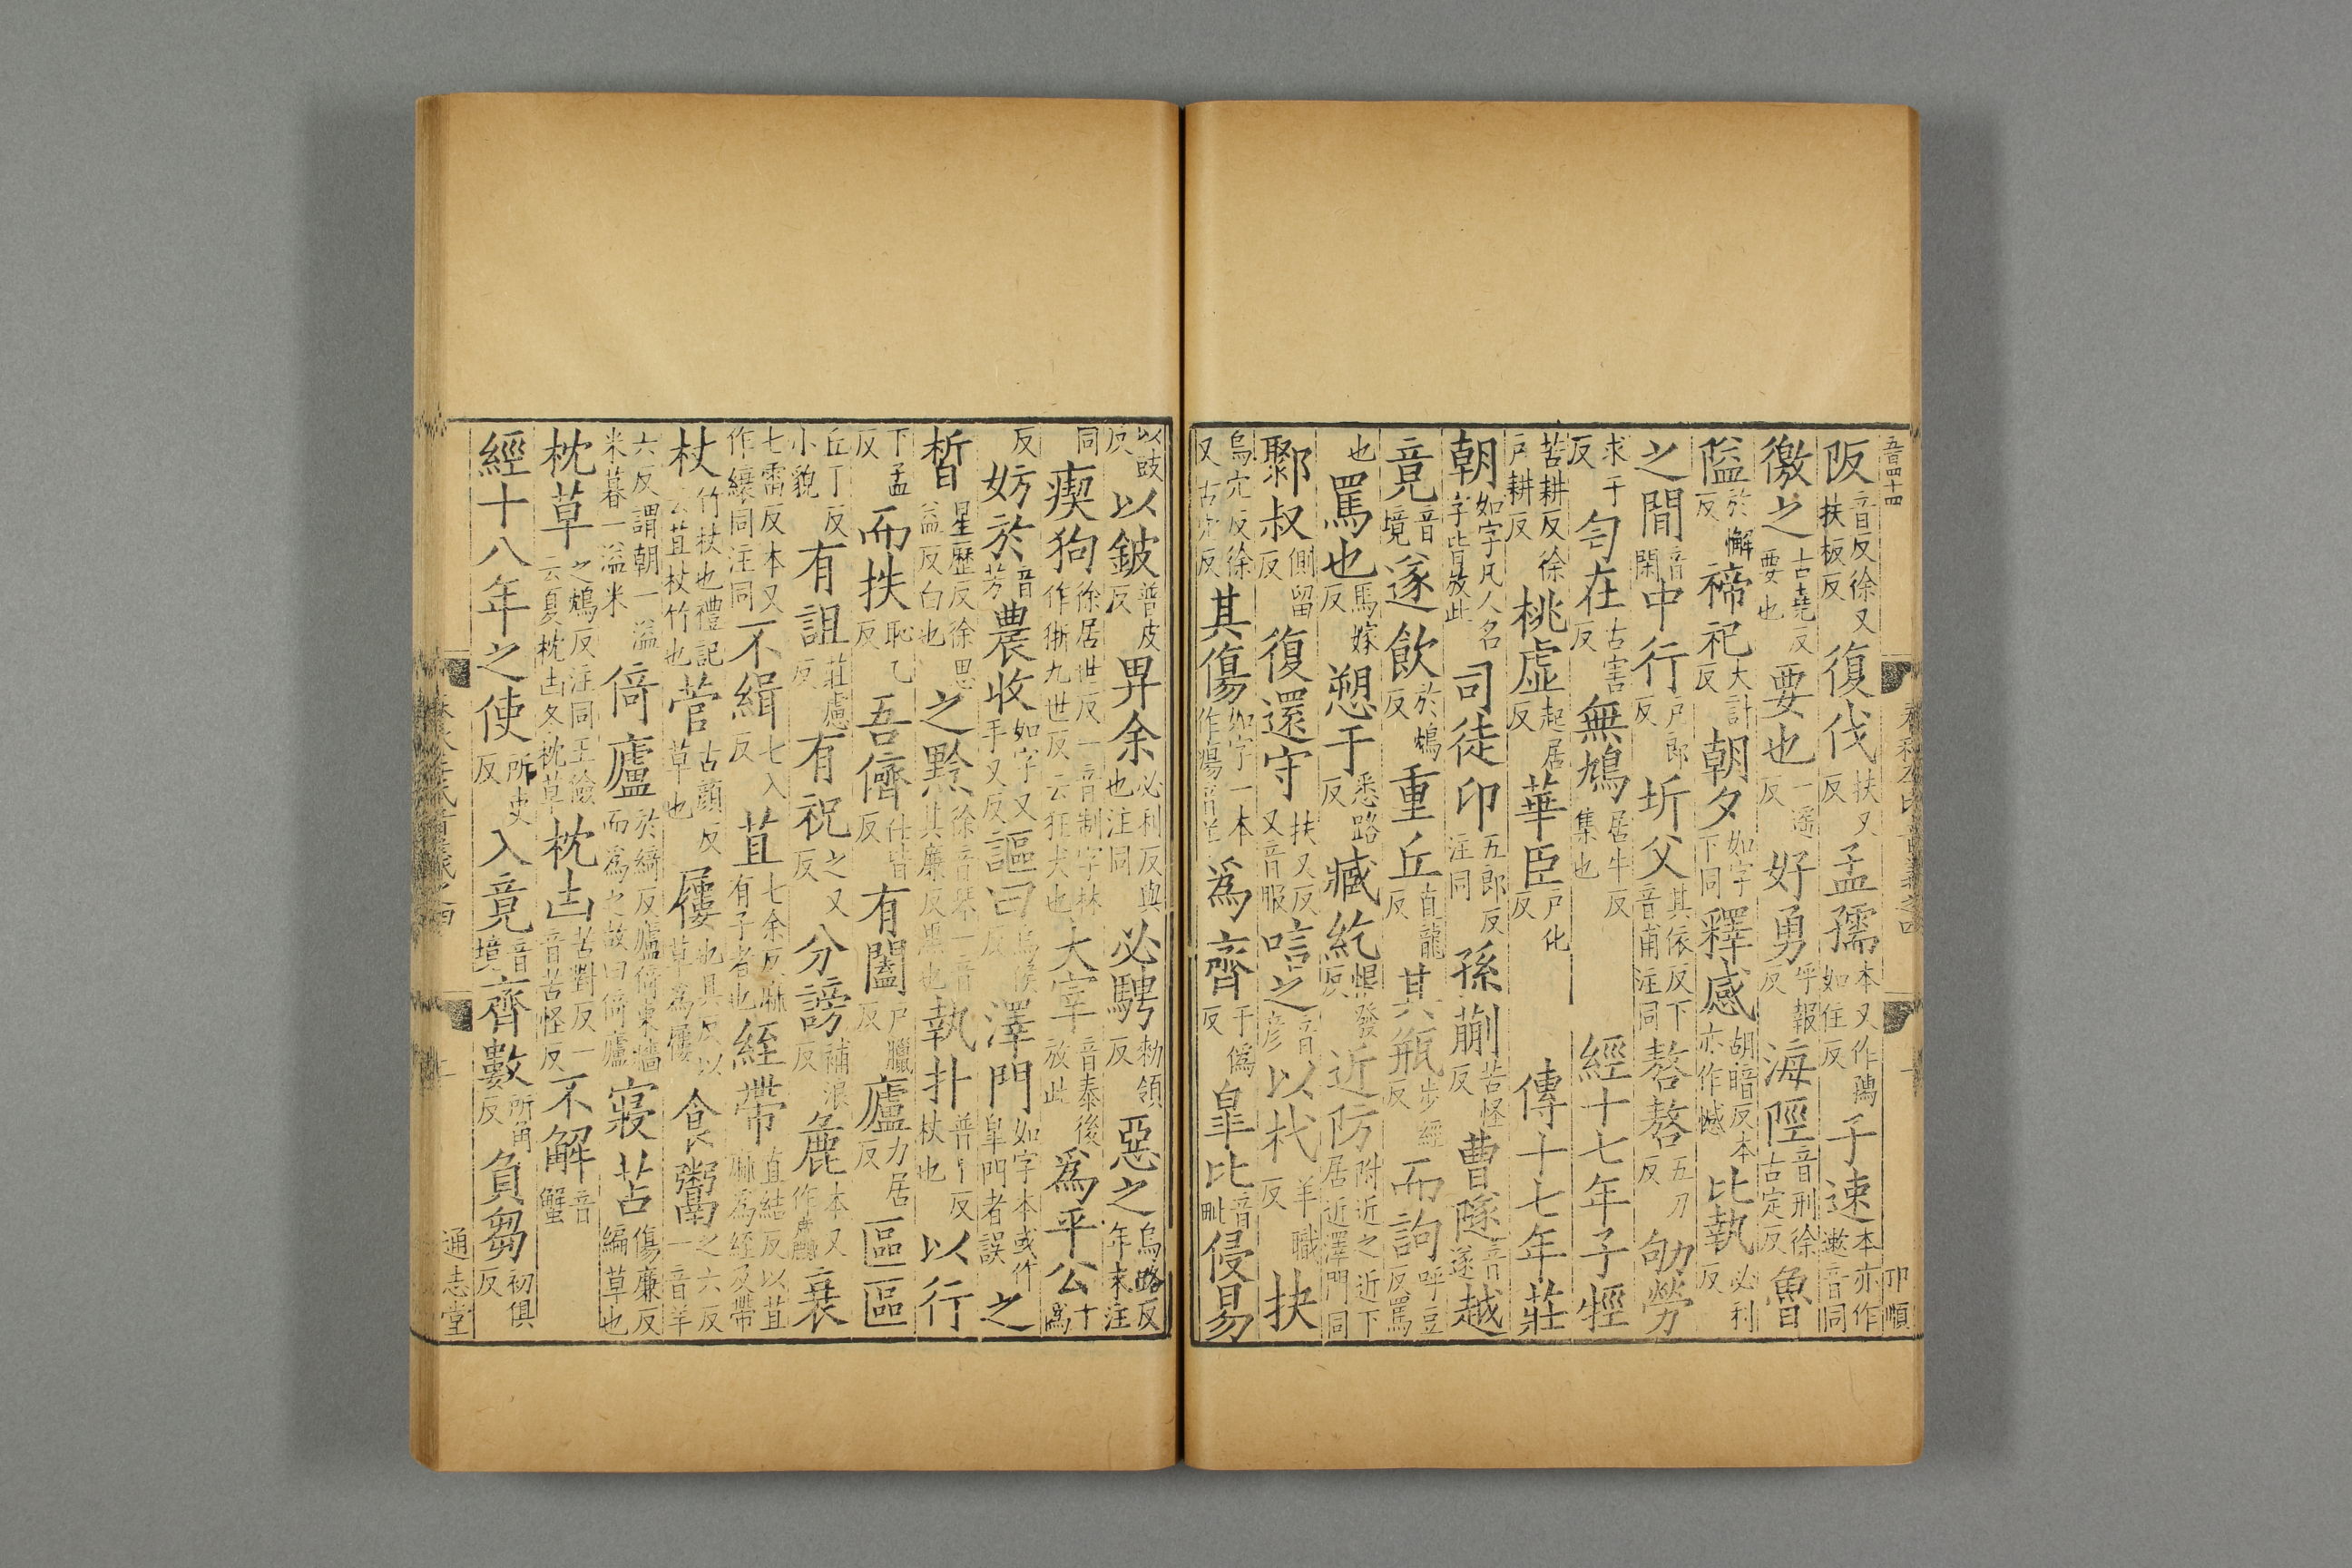 阪音反徐又扶板反復伐扶又反孟孺本又作㺞如住反子速本亦作遬音同
徼之古堯反要也要也一遥反好勇呼報反海陘音刑徐古定反魯
隘於懈反禘祀大計反朝夕如字下同釋感胡暗反本亦作憾比執必利反
之閒音閑中行戸郎反圻父其依反下音甫注同嗸嗸五刀反劬勞
求于反匄在古害反無鳩居牛反集也 經十七年子牼
苦耕反徐戸耕反桃虛起居反華臣戸化反 傳十七年莊
朝如字凡人名字皆放此司徒卬五郎反注同孫蒯苦怪反曹隧音遂越
竟音境遂飲於鴆反重丘直龍反其瓶步經反而訽呼豆反罵
也罵也馬嫁反愬于悉路反臧紇恨發反近防附近之近下居近澤門同
郰叔側留反復還守扶又反又音服唁之音彦以杙羊職反抉
烏穴反徐又古穴反其傷如字一本作瘍音羊爲齊于僞反辠比音毗侵易
以豉反以鈹普皮反畀余必利反與也注同必騁勑領反惡之烏路反年末注
同瘈狗徐居世反一音制字林作狾九世反云狂犬也大宰音泰後放此爲平公爲十
反妨於音芳農收如字又手又反謳曰烏侯反澤門如字本或作皐門者誤之
晳星歷反徐思益反白也之黔徐音琴一音其廉反黑也執扑普卜反杖也以行
下孟反而抶恥乙反吾儕仕皆反有闔戸臘反廬力居反區區
丘丁反小貌有詛莊慮反有祝之又反分謗補浪反麁本又作麤衰
七雷反本又作縗同注同不緝七入反苴七余反麻有子者也絰帶直結反以苴麻爲絰及帶
杖竹杖也禮記云苴杖竹也菅古顔反草也屨也具反以草爲屨食鬻之六反一音羊
六反謂朝一溢米暮一溢米倚廬於綺反廬倚東牆而爲之故曰倚廬寢苫傷廉反編草也
枕草之鴆反注同王儉云夏枕凷冬枕草枕凷苦對反一音苦怪反不解音蟹
經十八年之使所吏反入竟音境齊數所角反負芻初俱反
通志堂